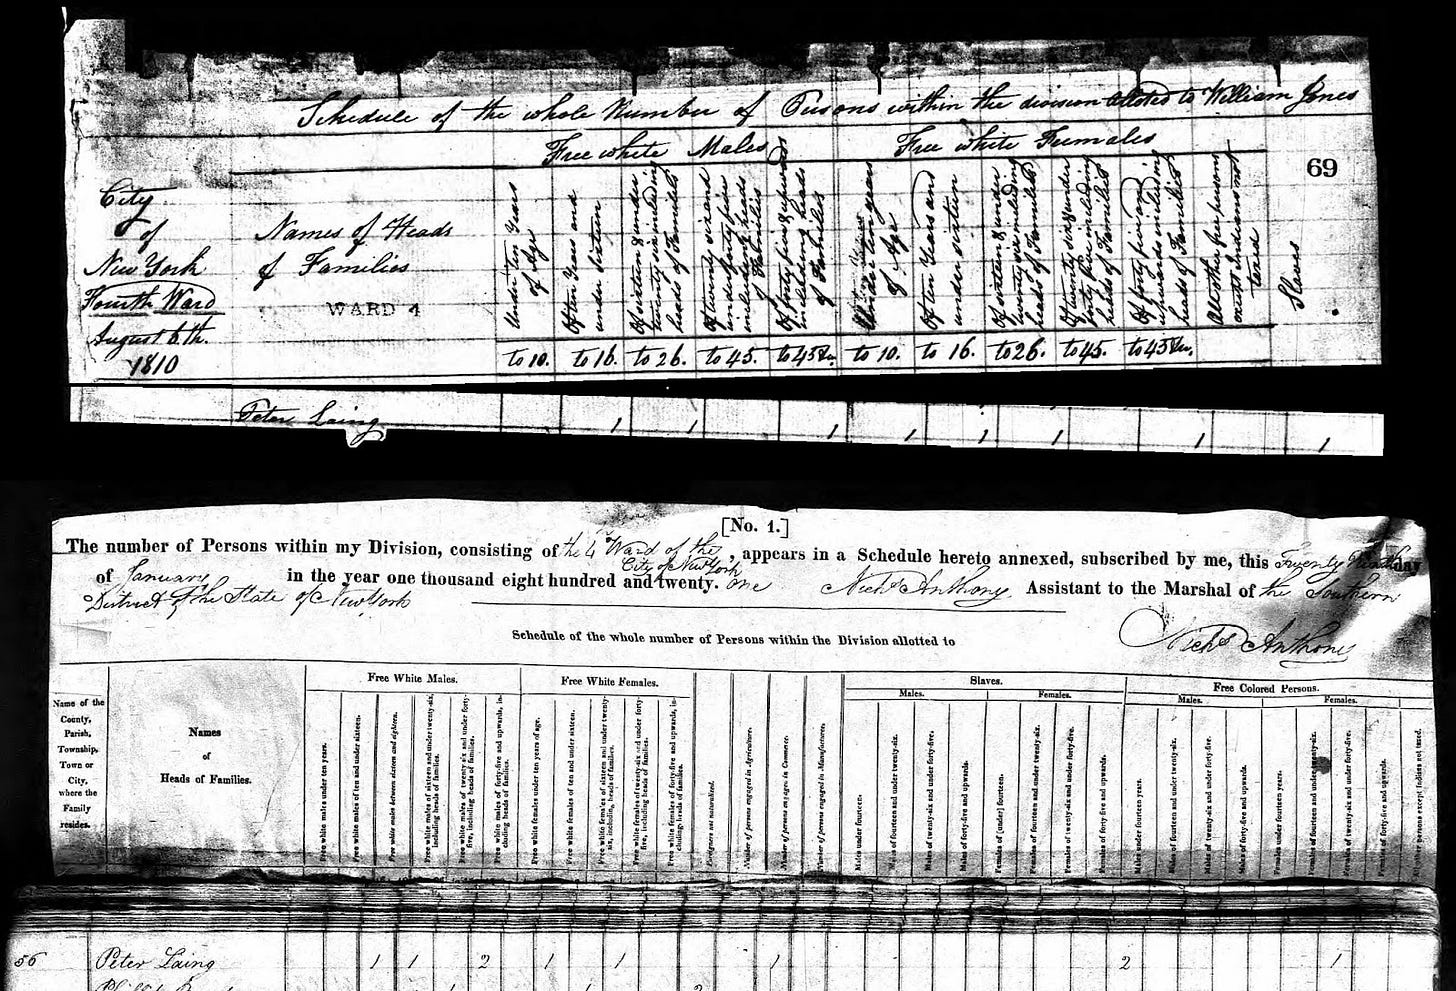 Schedule of the whole Number of Persons within the division alloted to William Jones
Free white Males
Free white Females
69
City
of
New York
Fourth Ward
August 6th.
1810
Names of Heads
of Families
WARD 4
Under ten Years
of Age
Of ten Years and
under sixteen
Of sixteen & under
twenty six including
heads of Families
Of twenty six and
under forty five
including heads
of Families
Of forty five & upwards
including heads
of Families
Under ten years
of Age
Of ten Years and
under sixteen
Of sixteen & under
twenty six including
heads of Families
Of twenty six & under
forty five including
heads of Families
Of forty five and
upwards including
heads of Families
All other free persons
except Indians not
taxed
Slaves
to 10. to 16. to 26. to 45. to 45 &c. to 10. to 16. to 26. to 45. to 45 &c.
Peter Laing 1 1 1 1 1 1 1 1
[No. 1.]
The number of Persons within my Division, consisting of the 4th Ward of the City of New York, appears in a Schedule hereto annexed, subscribed by me, this Twenty day
of January in the year one thousand eight hundred and twenty. one Nichs Anthony Assistant to the Marshal of the Southern
District of the State of New York
Schedule of the whole number of Persons within the Division allotted to
Nichs Anthony
Name of the
County,
Parish,
Township,
Town or
City,
where the
Family
resides.
Names
of
Heads of Families.
Free White Males.
Free white males under ten years.
Free white males of ten and under sixteen.
Free white males between sixteen and eighteen.
Free white males of sixteen and under twenty-six,
including heads of families.
Free white males of twenty-six and under forty-
five, including heads of families.
Free white males of forty-five and upwards, in-
cluding heads of families.
Free White Females.
Free white females under ten years of age.
Free white females of ten and under sixteen.
Free white females of sixteen and under twenty-
six, including heads of families.
Free white females of twenty-six and under forty-
five, including heads of families.
Free white females of forty-five and upwards, in-
cluding heads of families.
Foreigners not naturalized.
Number of persons engaged in Agriculture.
Number of persons engaged in Commerce.
Number of persons engaged in Manufactures.
Slaves.
Males.
Males under fourteen.
Males of fourteen and under twenty-six.
Males of twenty-six and under forty-five.
Males of forty-five and upwards.
Females.
Females of [under] fourteen.
Females of fourteen and under twenty-six.
Females of twenty-six and under forty-five.
Females of forty five and upwards.
Free Colored Persons.
Males.
Males under fourteen years.
Males of fourteen and under twenty-six.
Males of twenty-six and under forty-five.
Males of forty-five and upwards.
Females.
Females under fourteen years.
Females of fourteen and under twenty-six.
Females of twenty-six and under forty-five.
Females of forty-five and upwards.
All other persons except Indians not taxed.
56 Peter Laing 1 1 2 1 1 1 2 1